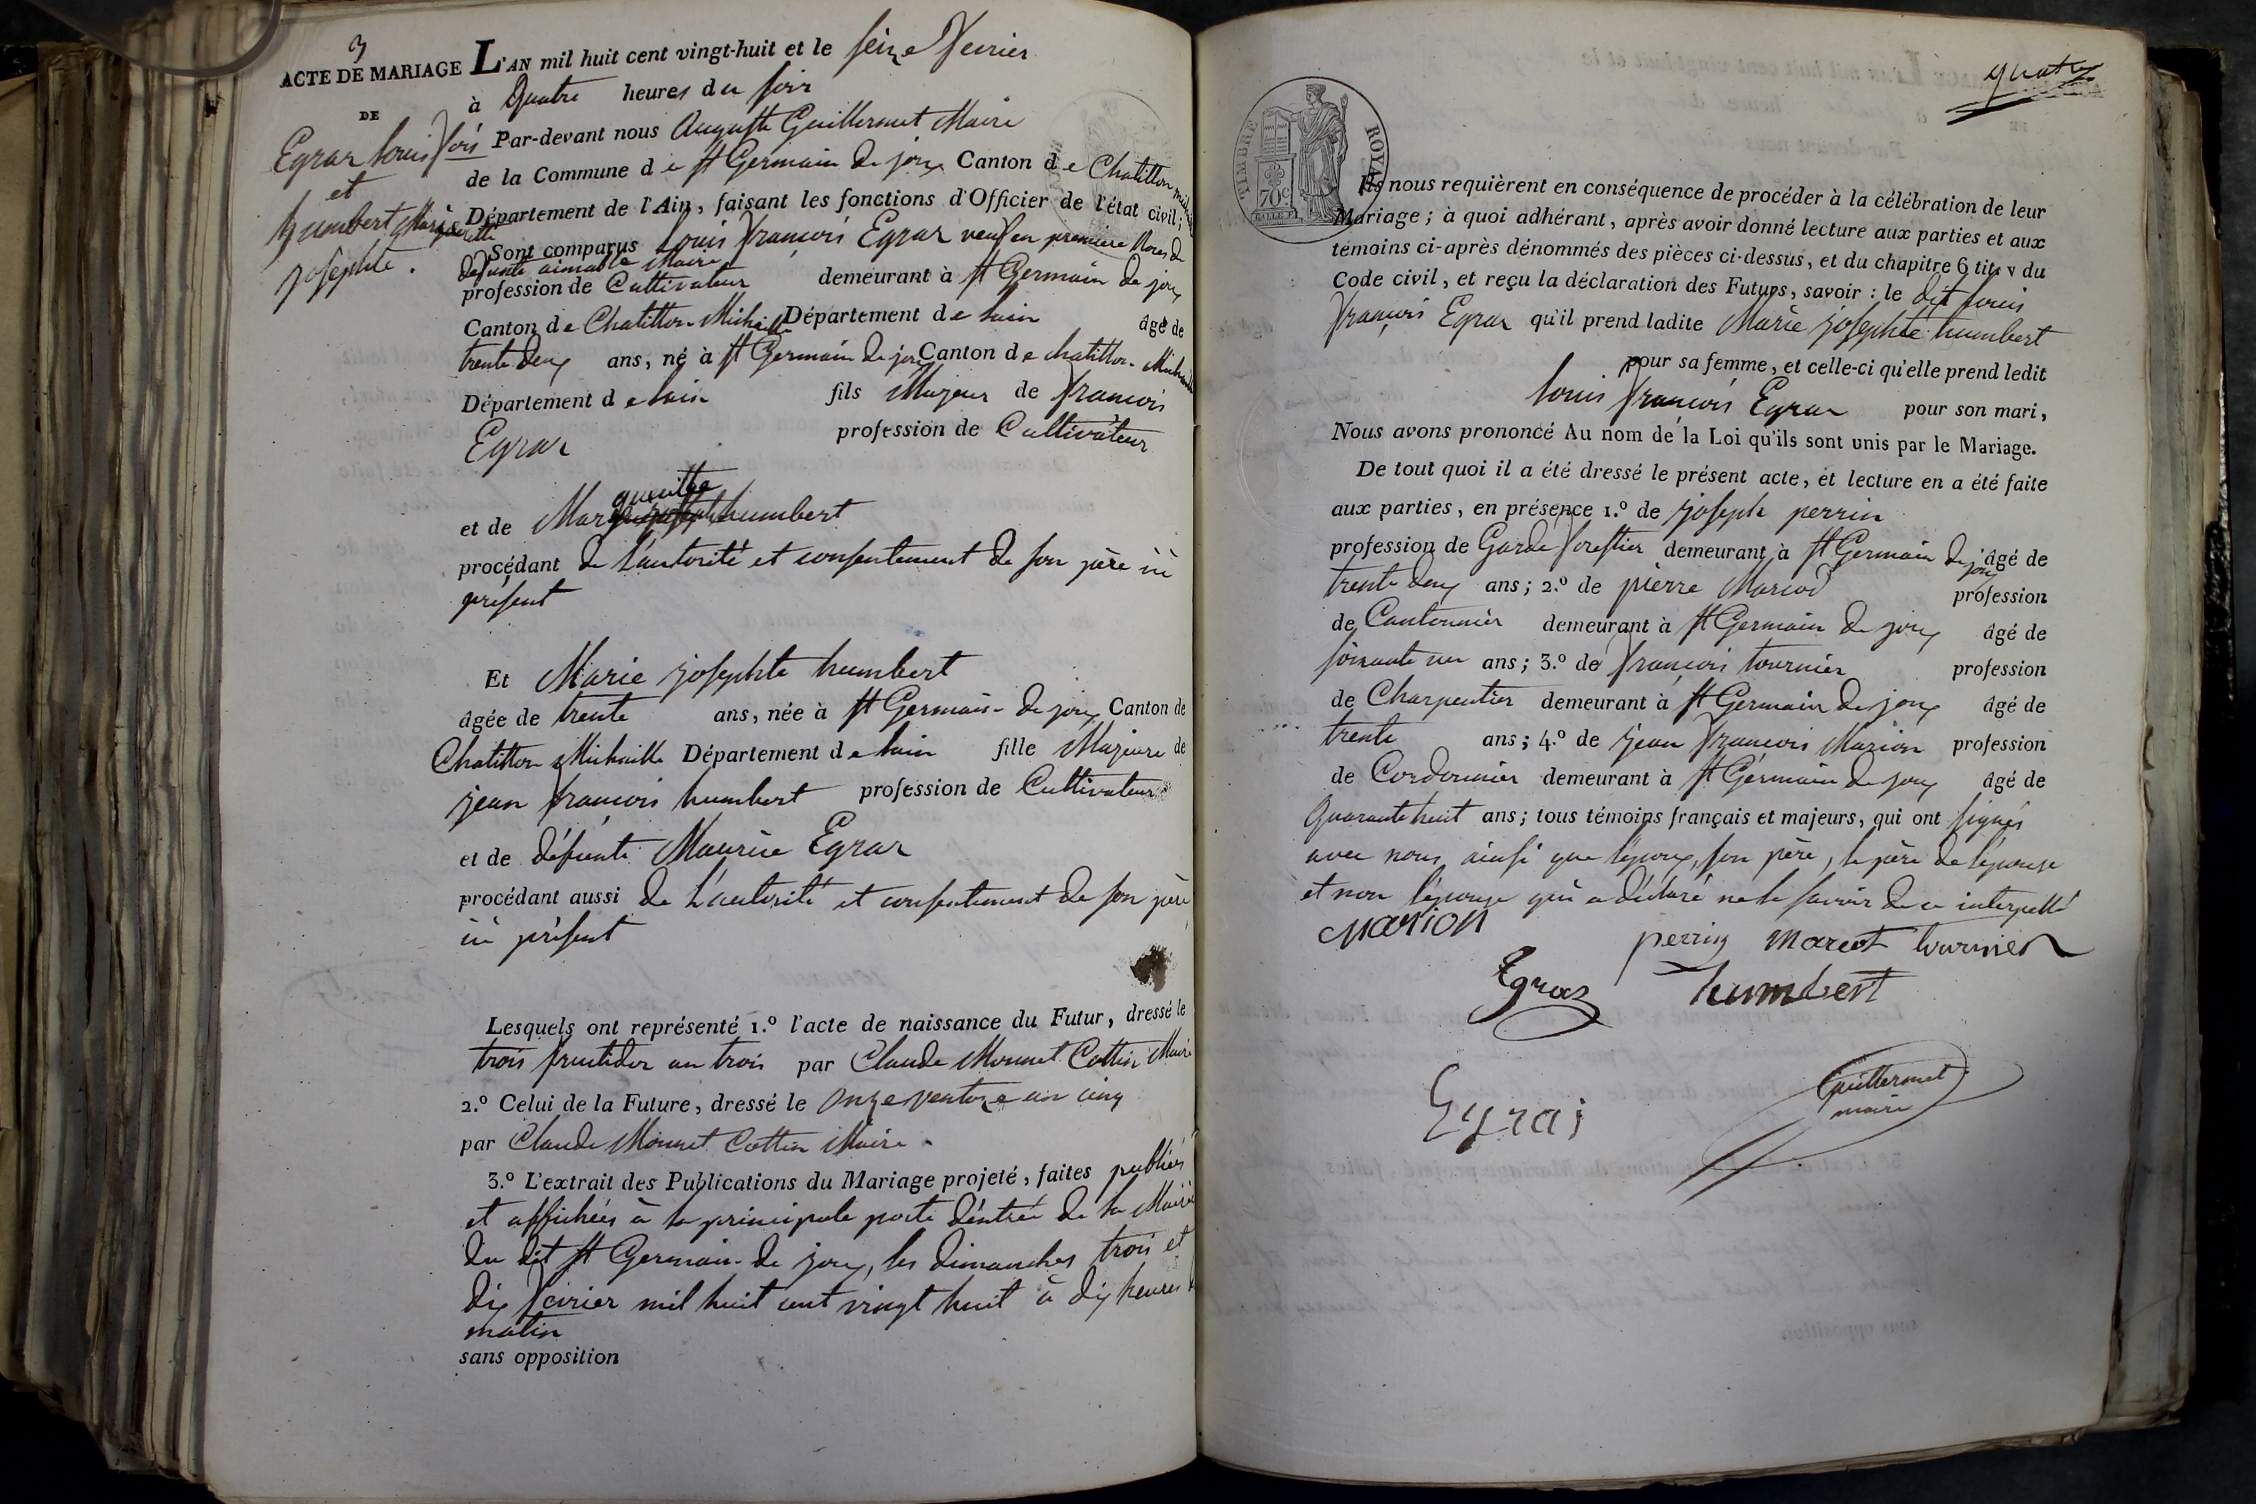 3
ACTE DE MARIAGE
DE
Egraz Louis fois
et
humbert Marie
josephte.
L'AN mil huit cent vingt-huit et le seize fevrier
à Quatre heures du soir
Par-devant nous Auguste Guillermet Maire
de la Commune de St Germain de joux Canton de Chatillon
Département de l'Ain, faisant les fonctions d'Officier de l'état civil;
Sont comparus Louis françois Egraz veuf en premiere Noces de
defunte aimable Maire
profession de Cultivateur demeurant à St Germain de joux
Canton de Chatillon Michaille Département de lain âgé de
trente deux ans, né à St Germain de joux Canton de chatillon Michaille
Département de lain fils Majeur de francois
Egraz profession de Cultivateur
et de Margueritte humbert
procédant de l'autorité et consentement de son père ici
présent
Et Marie josephte humbert
âgée de trente ans, née à St Germain de joux Canton de
Chatillon Michaille Département de lain fille Majeure de
jean françois humbert profession de Cultivateur
et de défunte Maurise Egraz
procédant aussi de L'autorité et consentement de son père
ici présent
Lesquels ont représenté 1.º l'acte de naissance du Futur, dressé le
trois fructidor an trois par Claude Monnet Cottin Maire
2.º Celui de la Future, dressé le onze ventoze an cinq
par Claude Monnet Cottin Maire.
3.º L'extrait des Publications du Mariage projeté, faites publiées
et affichées à la principale porte d'entrée de la Mairie
du dit St Germain de joux, les dimanches trois et
dix fevrier mil huit cent vingt huit à dix heures
matin
sans opposition
quatre
TIMBRE ROYAL
70 c
Ils nous requièrent en conséquence de procéder à la célébration de leur
Mariage; à quoi adhérant, après avoir donné lecture aux parties et aux
témoins ci-après dénommés des pièces ci-dessus, et du chapitre 6 titre v du
Code civil, et reçu la déclaration des Futurs, savoir: le dit Louis
françois Egraz qu'il prend ladite Marie josephte humbert
pour sa femme, et celle-ci qu'elle prend ledit
Louis françois Egraz pour son mari,
Nous avons prononcé Au nom de la Loi qu'ils sont unis par le Mariage.
De tout quoi il a été dressé le présent acte, et lecture en a été faite
aux parties, en présence 1.º de joseph perrin
profession de Garde forestier demeurant à St Germain de joux âgé de
trente deux ans; 2.º de pierre Marcod profession
de Cantonnier demeurant à St Germain de joux âgé de
soixante un ans; 3.º de françois tournier profession
de Charpentier demeurant à St Germain de joux âgé de
trente ans; 4.º de jean françois Marion profession
de Cordonnier demeurant à St Germain de joux âgé de
Quarante huit ans; tous témoins français et majeurs, qui ont signés
avec nous ainsi que l'époux, son père, le père de l'épouse
et non l'épouse qui a déclaré ne le savoir de ce interpellé
Marion
perrin marcot tournier
Egraz humbert
Egraz
Guillermet
maire